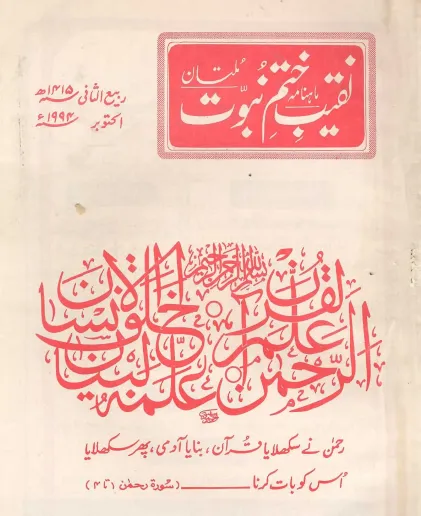 ماہنامہ نقیبِ ختمِ نبوّت مُلتان
ربیع الثانی ۱۴۱۵ھ
اکتوبر ۱۹۹۴ء
بسم الله الرحمن الرحيم
الرَّحْمٰنُ عَلَّمَ الْقُرْآنَ خَلَقَ الْإِنْسَانَ عَلَّمَهُ الْبَيَانَ
رحمٰن نے سکھلایا قرآن، بنایا آدمی، پھر سکھلایا
اُس کو بات کرنا ــــــــ (سُورۃ رحمٰن ۱ تا ۴)